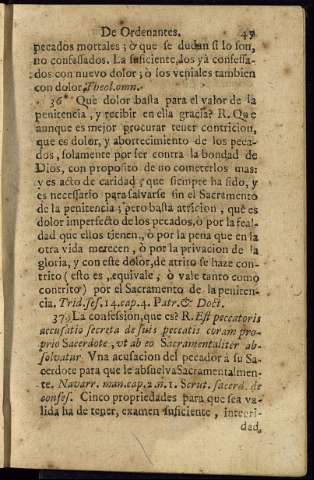 De Ordenantes. 45
pecados mortales; ò que se dudan si lo son,
no confessados. La suficiente, los ya confessa-
dos con nuevo dolor; ò los veniales tambien
con dolor. Theol. omn.
36 Que dolor basta para el valor de la
penitencia, y recibir en ella gracia? R. Que
aunque es mejor procurar tener contricion,
que es dolor, y aborrecimiento de los peca-
dos, solamente por ser contra la bondad de
Dios, con proposito de no cometerlos mas:
y es acto de caridad, que siempre ha sido, y
es necessario para salvarse sin el Sacramento
de la penitencia; pero basta atricion, que es
dolor imperfecto de los pecados, ò por la feal-
dad que ellos tienen, ò por la pena que en la
otra vida merecen, ò por la privacion de la
gloria, y con este dolor, de atrito se haze con-
trito (esto es, equivale, ò vale tanto como
contrito) por el Sacramento de la peniten-
cia. Trid. ses. 14. cap. 4. Patr. & Doct.
37 La confession, que es? R. Est peccatoris
accusatio secreta de suis peccatis coram pro-
prio Sacerdote, vt ab eo Sacramentaliter ab-
solvatur. Vna acusacion del pecador à su Sa-
cerdote para que le absuelva Sacramentalmen-
te. Navarr. man. cap. 2. n. 1. Scrut. sacerd. de
confes. Cinco propriedades para que sea va-
lida ha de tener, examen suficiente, integri-
dad,